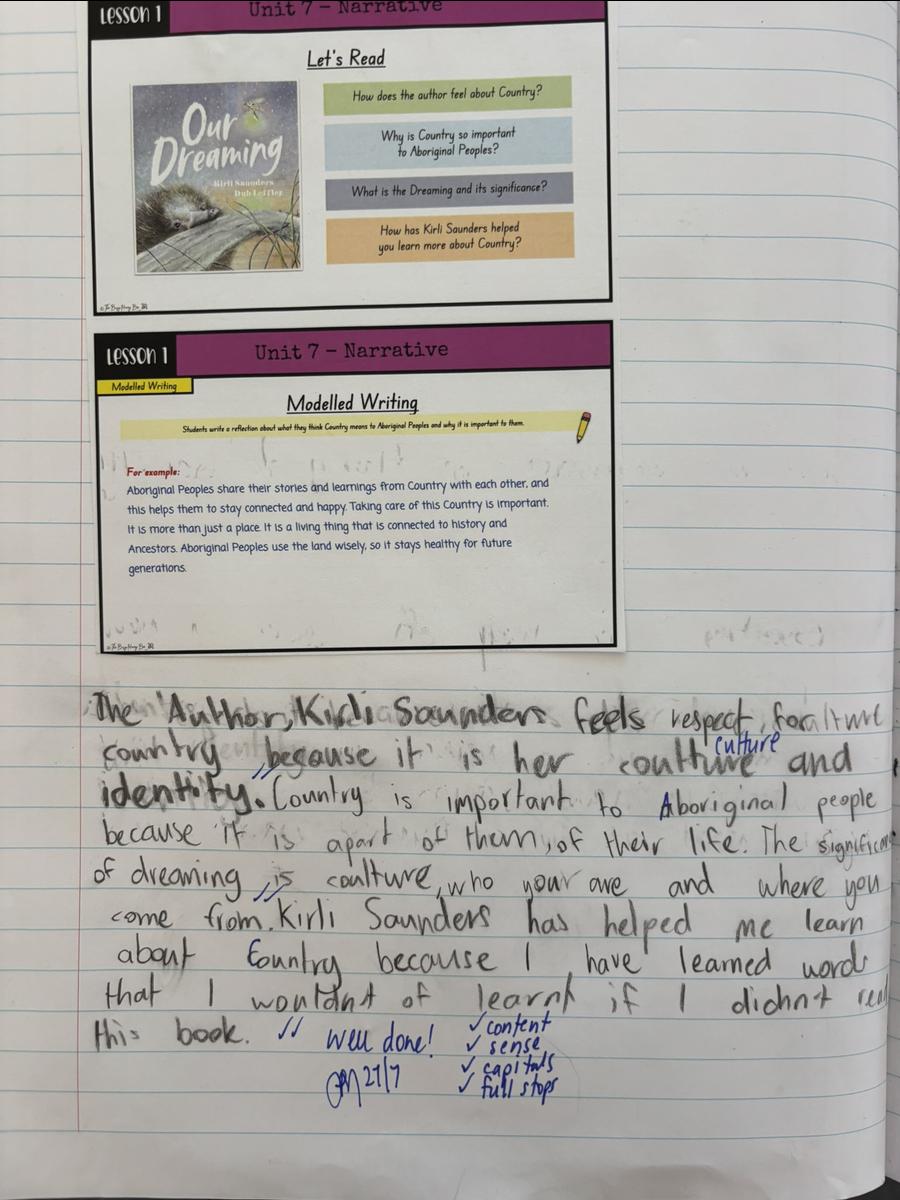 LESSON 1
Unit 7 - Narrative
Let's Read
Our
Dreaming
Kirli Saunders
Dub Leffler
How does the author feel about Country?
Why is Country so important
to Aboriginal Peoples?
What is the Dreaming and its significance?
How has Kirli Saunders helped
you learn more about Country?
LESSON 1
Unit 7 - Narrative
Modelled Writing
Modelled Writing
Students write a reflection about what they think Country means to Aboriginal Peoples and why it is important to them.
For example:
Aboriginal Peoples share their stories and learnings from Country with each other, and
this helps them to stay connected and happy. Taking care of this Country is important.
It is more than just a place. It is a living thing that is connected to history and
Ancestors. Aboriginal Peoples use the land wisely, so it stays healthy for future
generations.
The Author, Kirli Saunders feels respect, for
country, because it is her coulture and
culture
identity. Country is important to Aboriginal people
because it is apart of them, of their life. The
of dreaming is coulture, who your are and where you
come from. Kirli Saunders has helped me learn
about Country because I have learned words
that I wouldn't of learnt if I didn't
this book.
well done!
27/7
✓ content
✓ sense
✓ capitals
✓ full stops